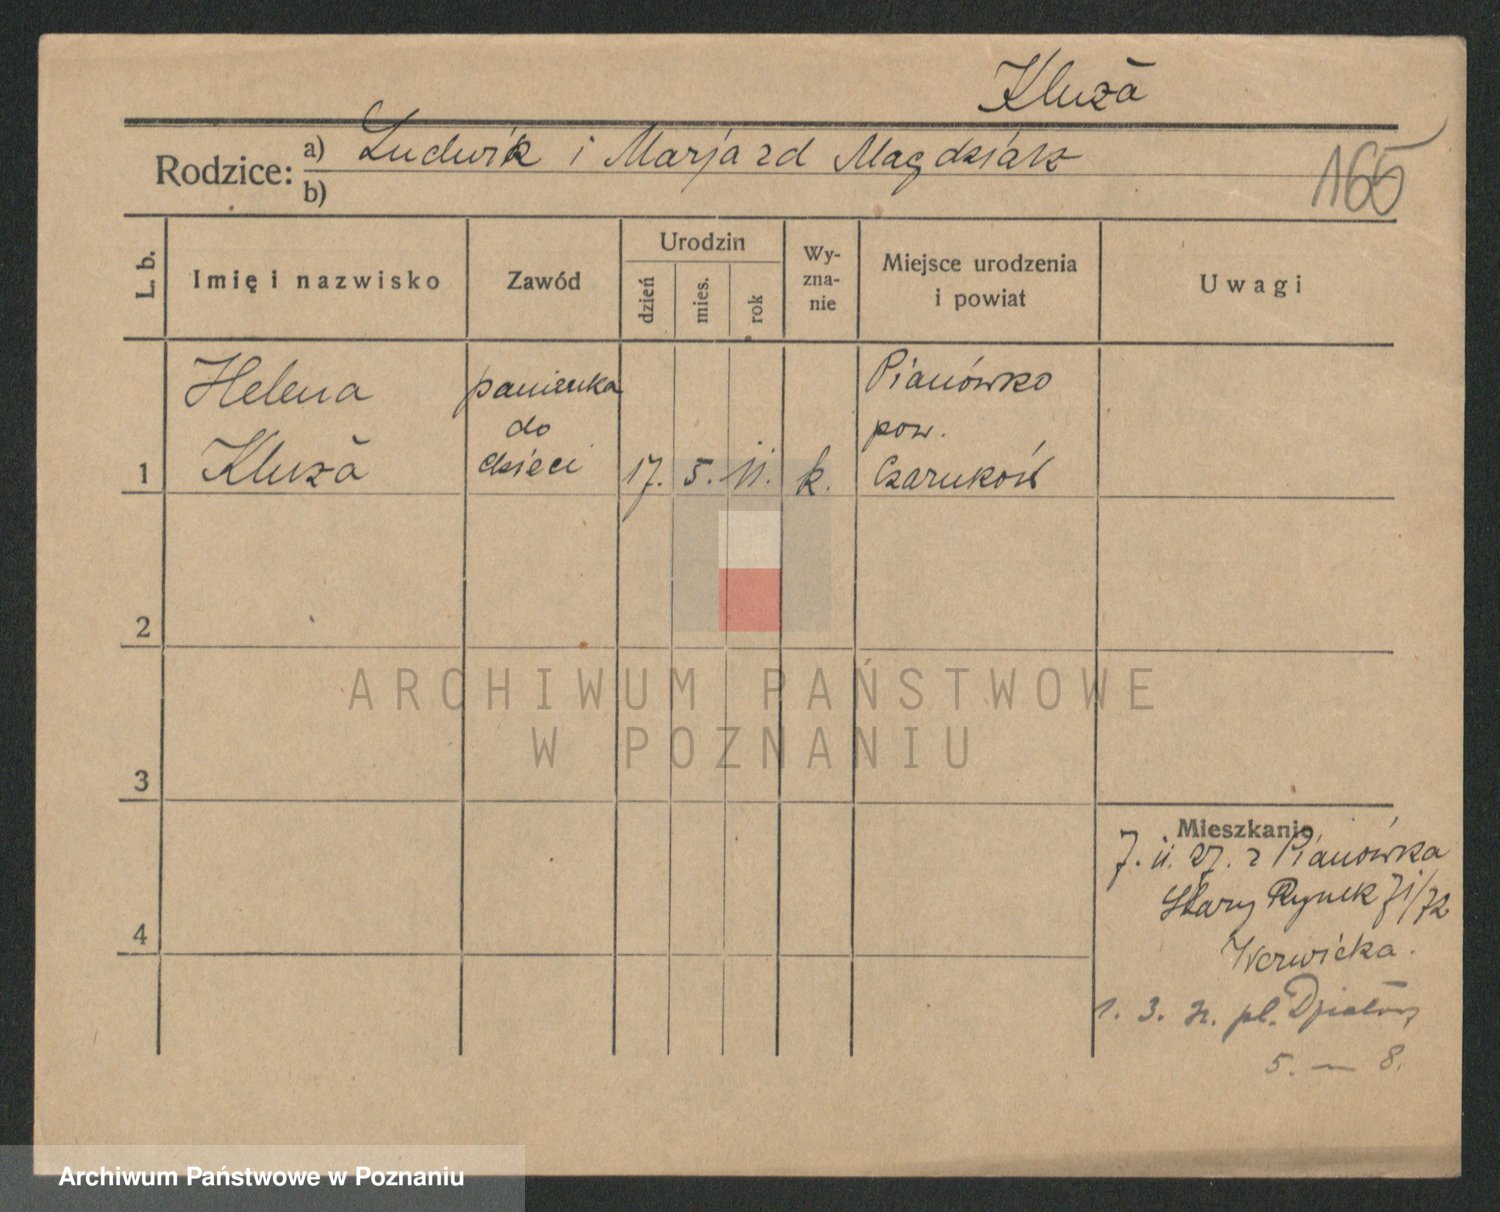 Kluza
Rodzice: a) Ludwik i Marja zd Magdziarz
b)
165
L. b.
Imię i nazwisko
Zawód
Urodzin
dzień
mies.
rok
Wy-
zna-
nie
Miejsce urodzenia
i powiat
Uwagi
1
Helena
Kluza
panienka
do
dzieci
17. 5. 11. k.
Pianówko
pow.
Czarnków
2
3
4
Mieszkanie
7. 11. 27. z Pianówka
Stary Rynek 71/72
1. 3. pl. Działowy
5. — 8.
ARCHIWUM PAŃSTWOWE
W POZNANIU
Archiwum Państwowe w Poznaniu